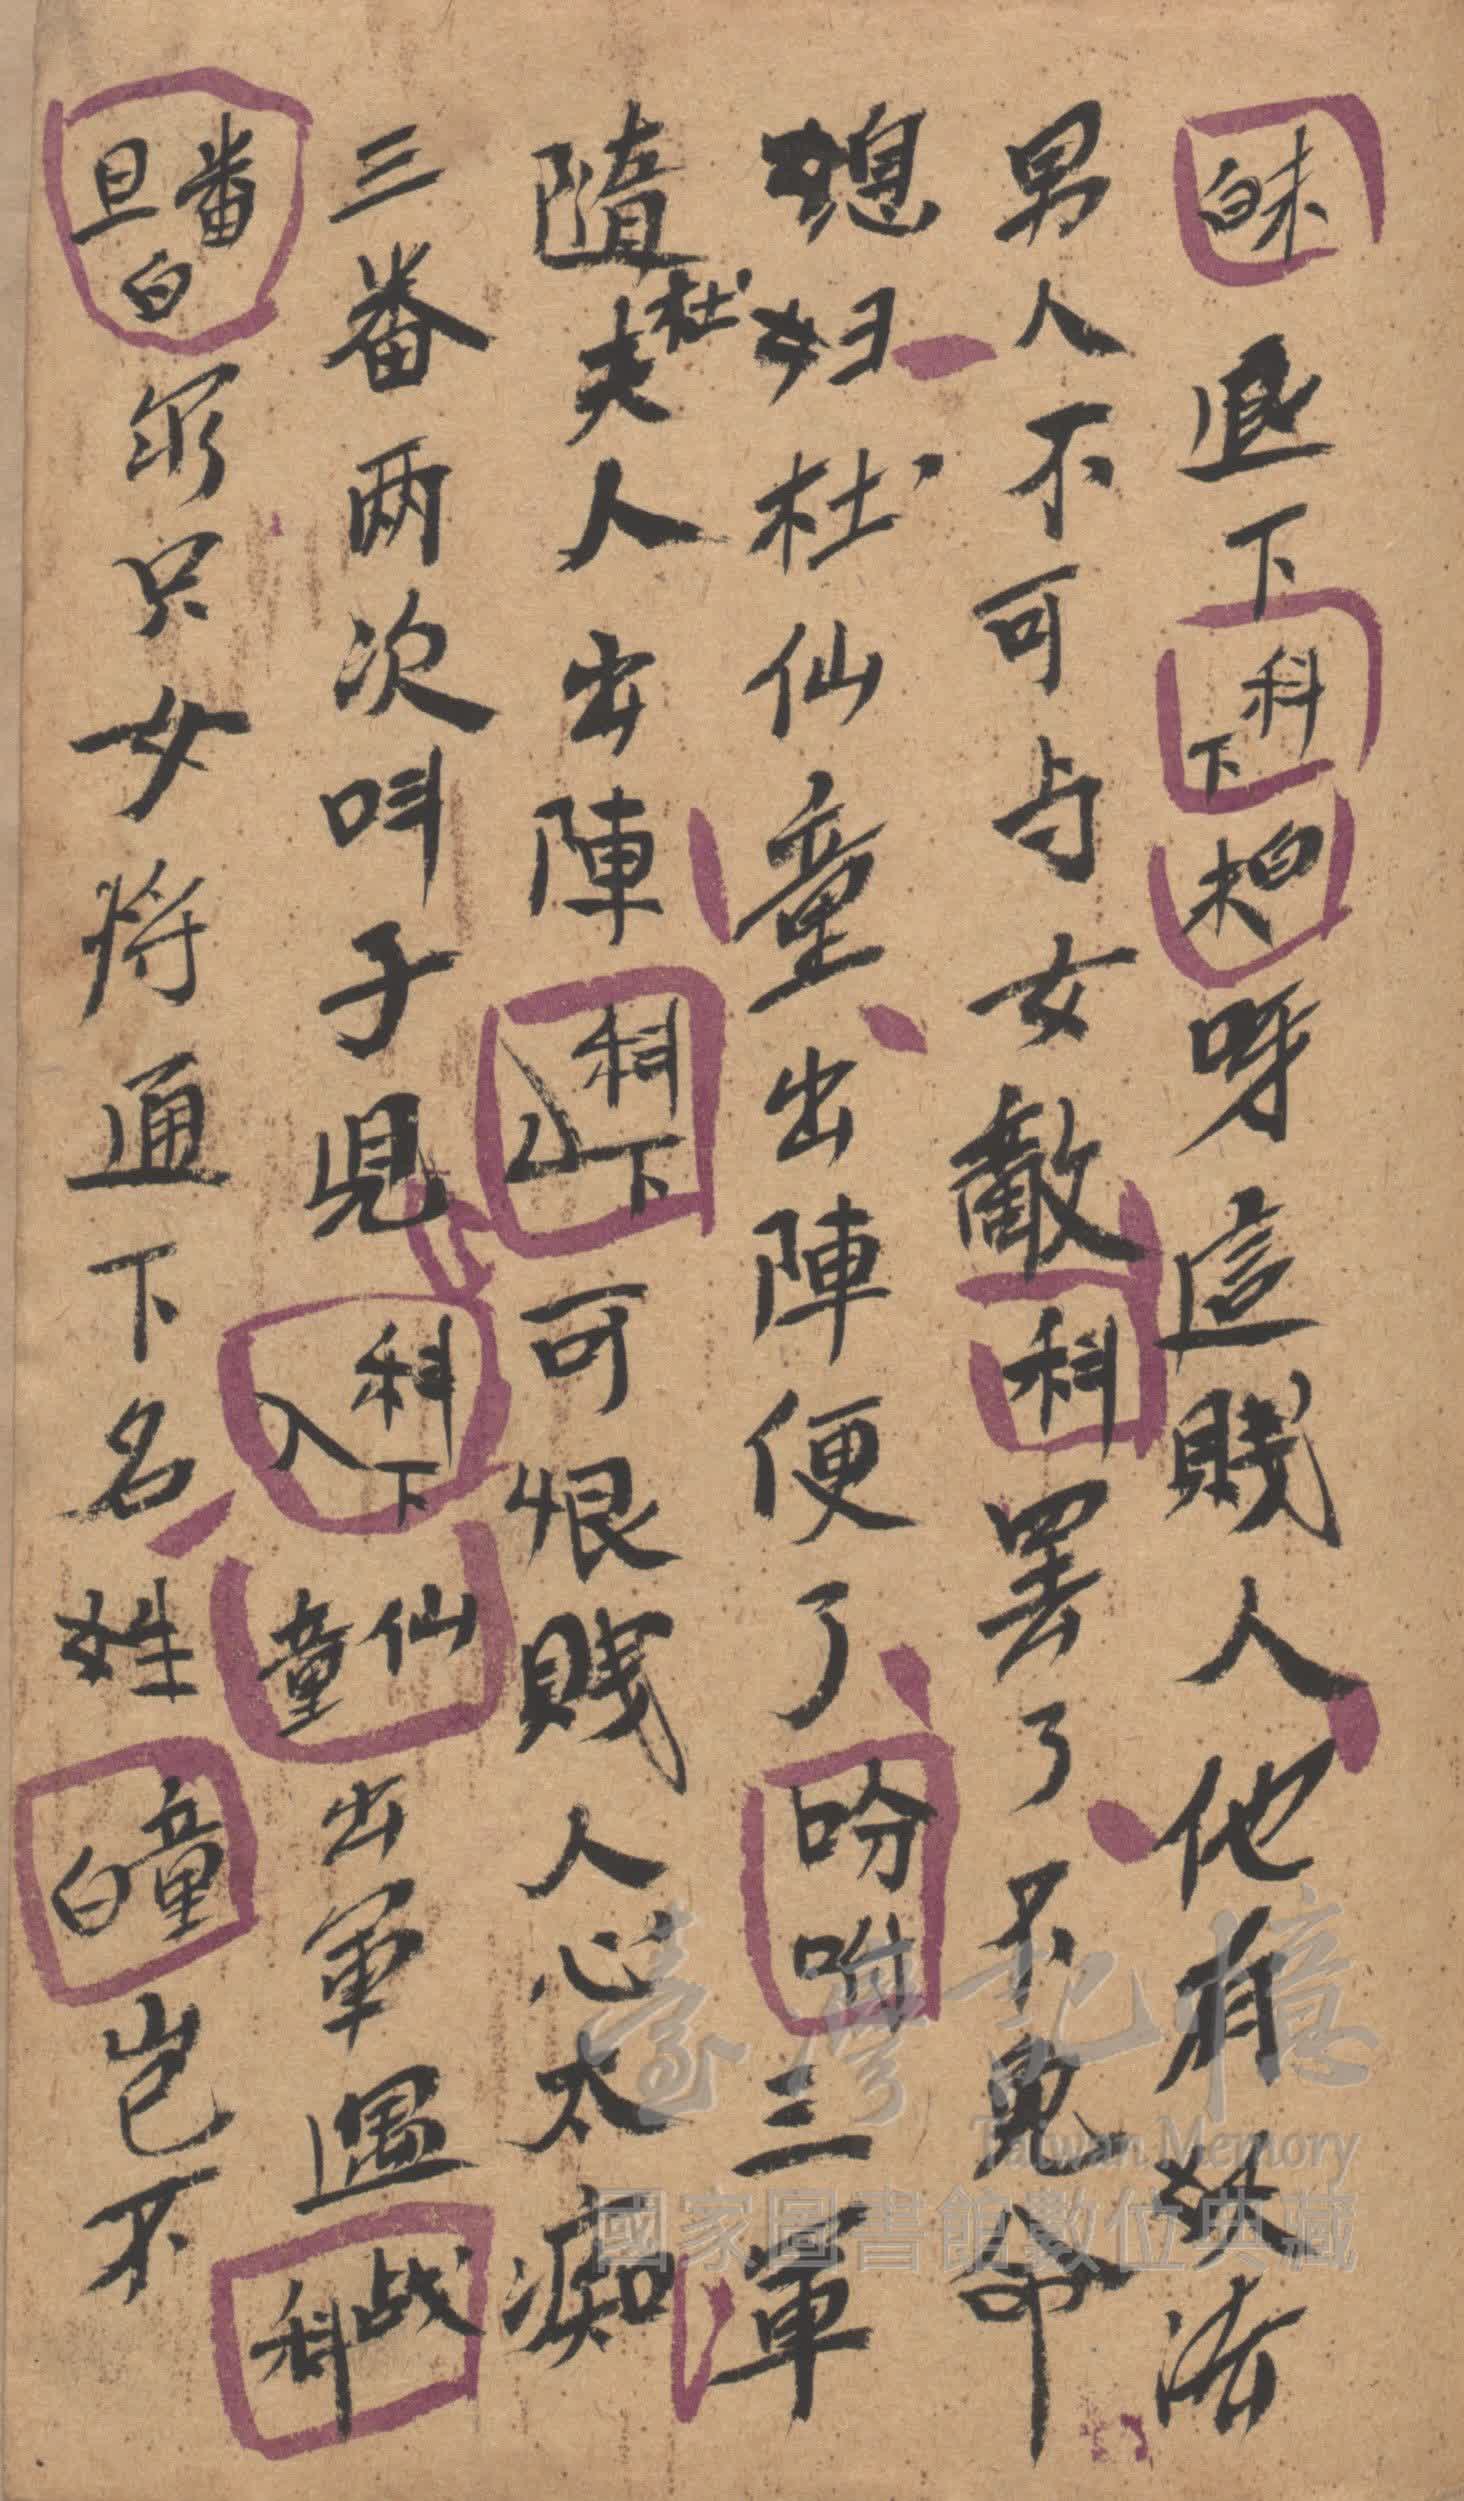 末白退下科下末白呀這賤人他有妖法
男人不可与女敵科罢了不免命
媳妇杜仙童出陣便了吩咐三軍
隨杜夫人出陣科下可恨賤人心太痴
三番两次叫子児科下入仙童出軍遇战科
番旦白尔只女将通下名姓童白岂不
臺灣記憶
Taiwan Memory
國家圖書館數位典藏